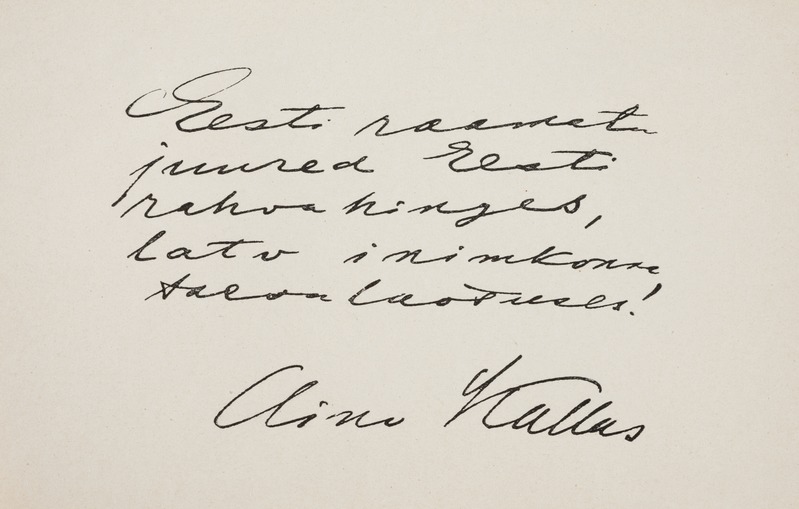 Eesti raamatu
juured Eesti
rahva hinges,
latv inimkonna
taevalaotuses!
Aino Kallas